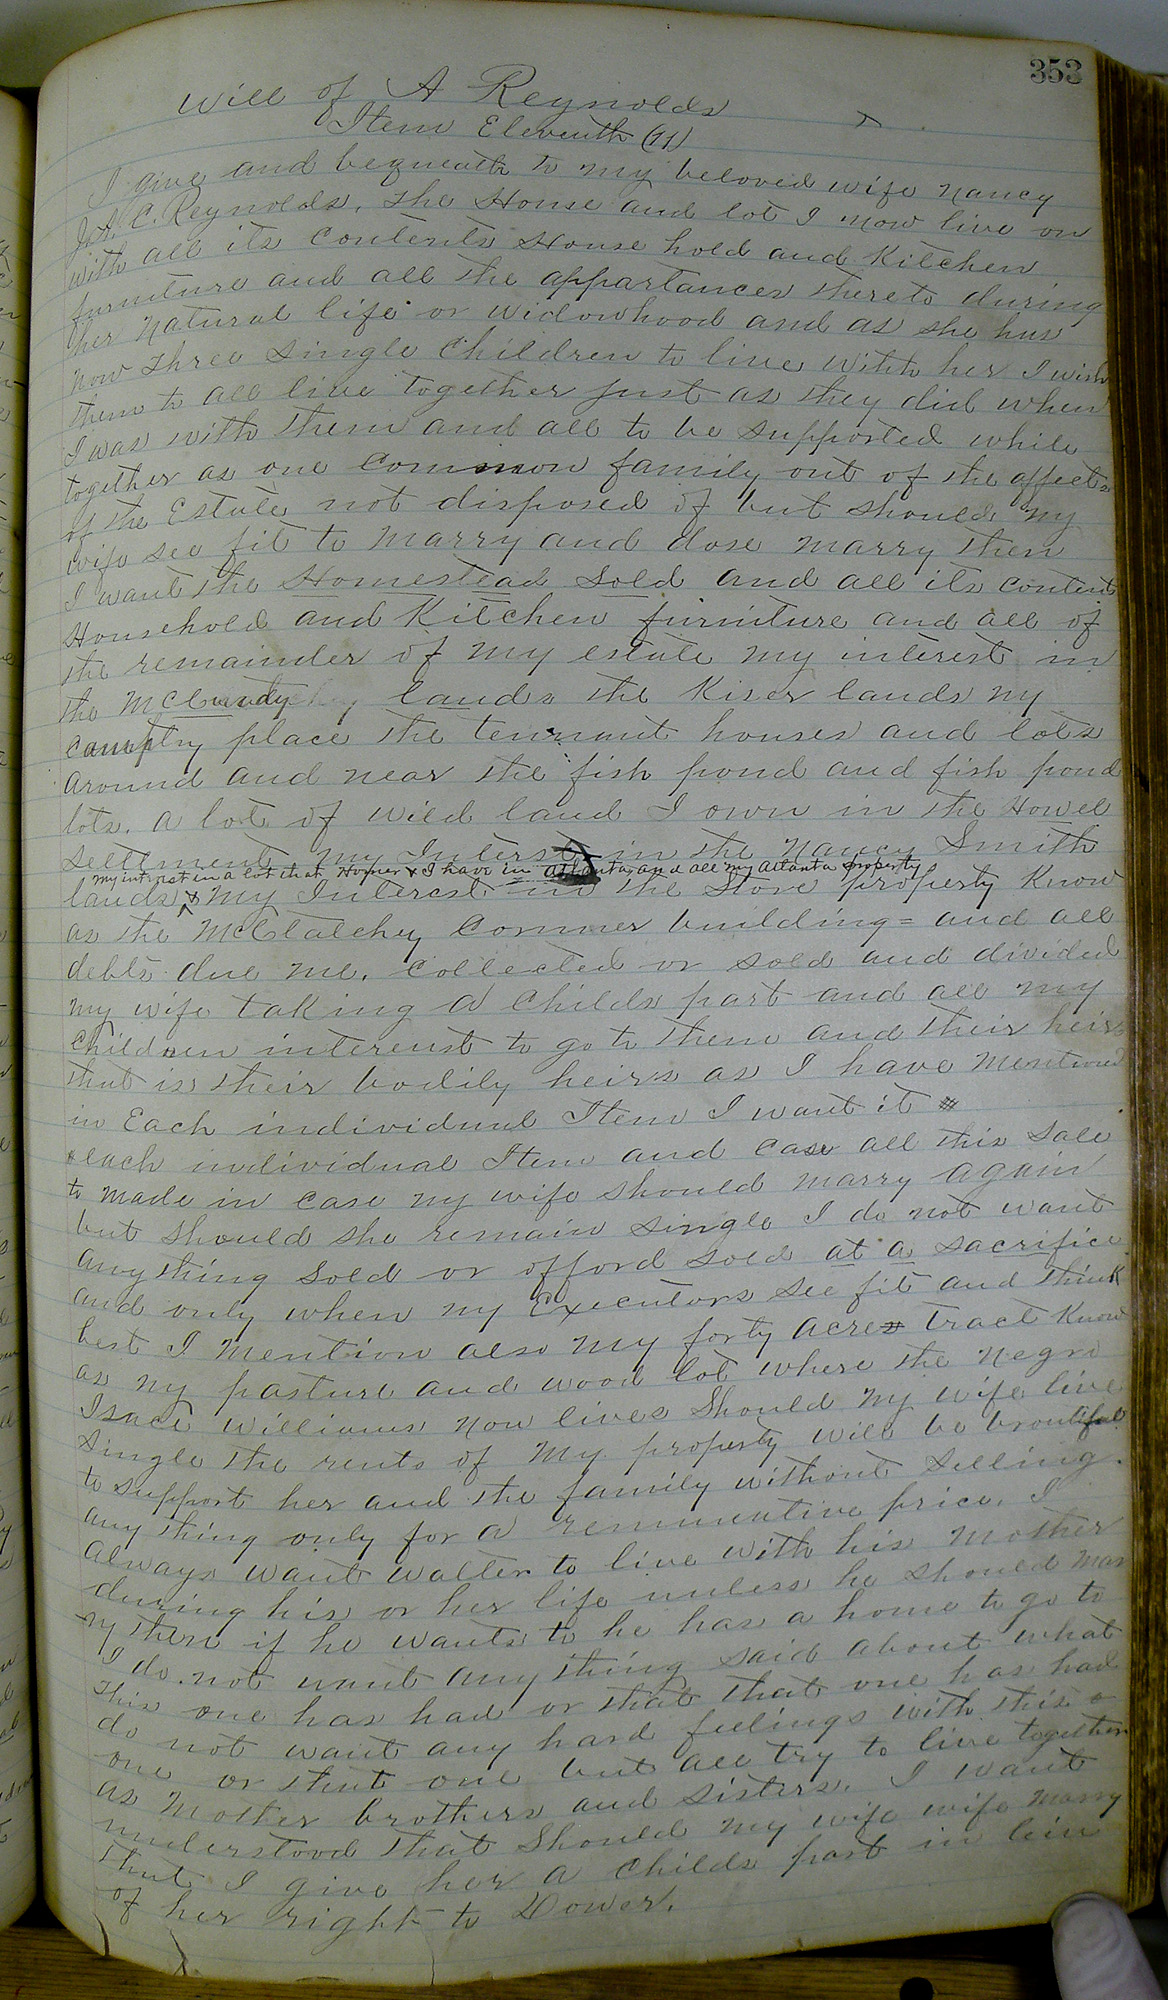 353
Will of A Reynolds
Item Eleventh (11)
I give and bequeath to my beloved wife Nancy
J. A. C. Reynolds, The House and lot I now live on
with all its contents House hold and Kitchen
furniture and all the appartances thereto during
her natural life or widowhood and as she has
now three single children to live with her I wish
them to all live together just as they did when
I was with them and all to be supported while
together as one common family out of the affects
of the Estate not disposed of but should my
wife see fit to marry and dose marry then
I want the Homestead sold and all its content
Household and Kitchen furniture and all of
the remainder of my estate my interest in
the lands the Kiser lands my
place the tennant houses and lots
around and near the fish pond and fish pond
lots. a lot of wild land I own in the Howel
settlement my Interst in the Nancy Smith
my interest in a lot that Horner & I have in atlanta, and all my atlanta property
lands & my Interest in the Store property Know
as the McClatchey Corner building = and all
debts due me. collected or sold and divided
my wife taking a childs part and all my
children interenst to go to them and their heirs
that is their bodily heirs as I have mentioned
in Each individual Item I want it
each individual Item and case all this sale
to made in case my wife should marry again
but should she remain single I do not want
anything sold or offord sold at a sacrifice
and only when my Executors see fit and think
best I mention also my forty acre tract Know
as my pasture and wood lot where the negro
Isace Williams now lives Should my wife live
single the rents of my property will be
to support her and the family without selling.
any thing only for a remunative price. I
always want Walter to live with his mother
during his or her life unless he should mar
ry then if he wants to he has a home to go to
I do not want any thing said about what
this one has had or that that one has had
do not want any hard feelings with this
one or that one but all try to live together
as mother brothers and sisters. I want
understood that Should my wife wife marry
that I give her a childs part in lin
of her right to Dower.